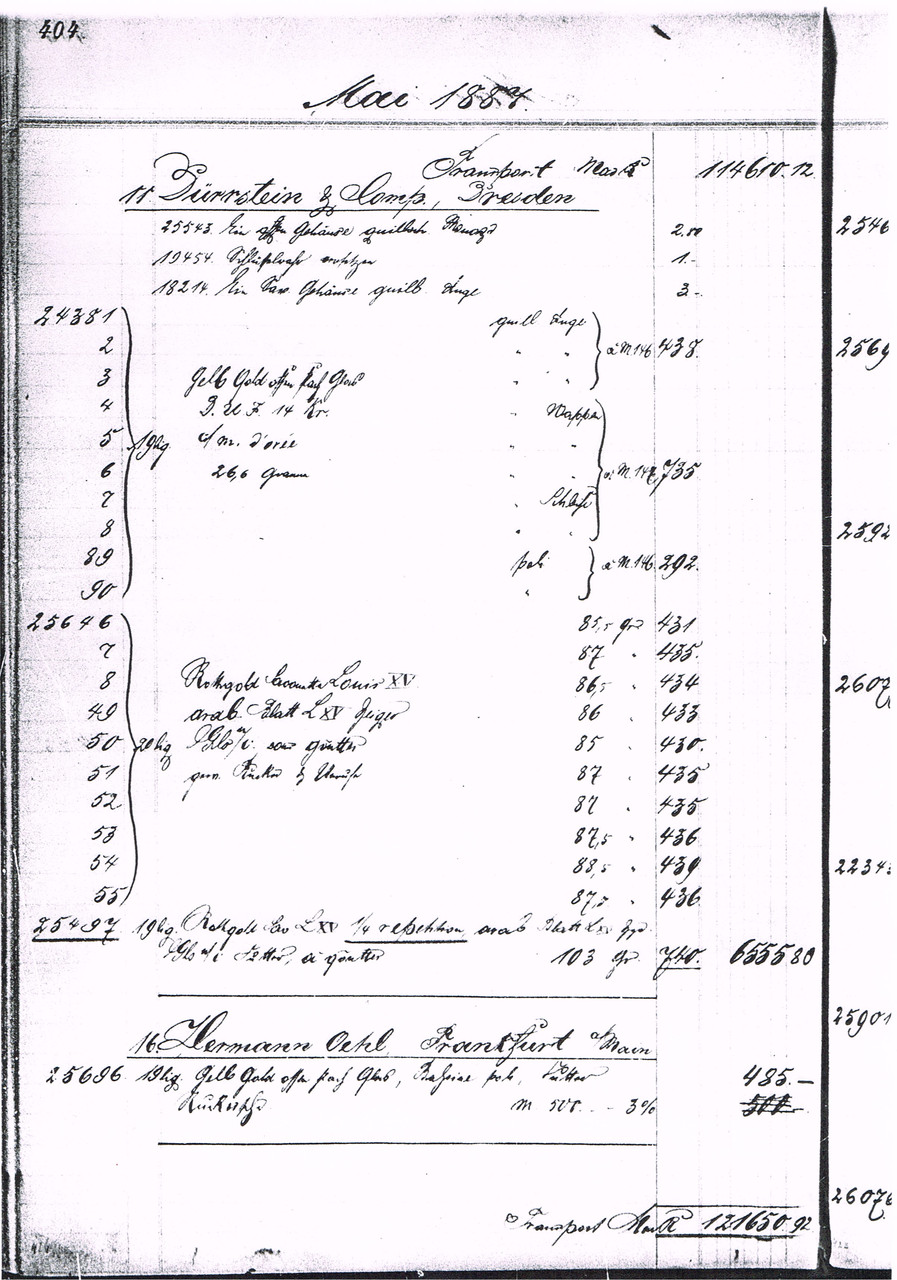 404.
Mai 1887.
Transport Mark 114610.12
11 Dürrstein & Comp., Dresden
25543. Ein offen Gehäuse guilloch 2.80
19454. 1.-
18214. Ein Sav. Gehäuse guill. Auge 3.-
24381 guill Auge
2 " " à M.146 438.
3 Gelb Gold offen flach Glas " "
4 D. U. F. 14 Kr. " Wappen
5 19lig c/m. dorée " "
6 26,6 Gramm " " à M.147 735
7 " Schleife
8 " "
89 poli à M.146 292.
90 "
25646 85,5 gr 431
7 87 " 435.
8 Rothgold Savonette Louis XV 86,5 " 434
49 arab. Blatt L XV Zeiger 86 " 433
50 20lig 85 " 430.
51 87 " 435
52 87 " 435
53 87,5 " 436
54 88,5 " 439
55 87,5 " 436
25497 19lig. Rothgold Sav L XV 1/4 repetition, arab Blatt L XV
103 gr. 740. 6555 80
16. Hermann Oehl, Frankfurt a/Main
25696 19lig. Gelb Gold offen flach Glas, poli, 485.—
M 500. - 3% 500.-
Transport Mark 121650.92
2546
2569
2592
2607
2234
25901
26076